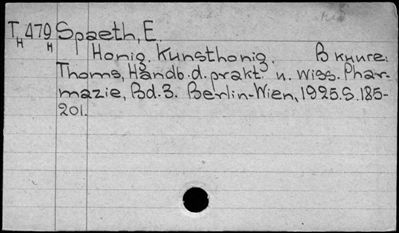 T 479 Spaeth, E.
H H
Honig. Kunsthonig. В книге:
Thoms, Handb. d. prakt. u. wiss. Phar-
mazie, Bd. 3. Berlin-Wien, 1925. S. 185-
201.